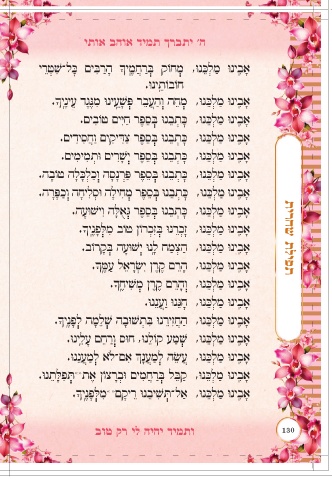 ה' יתברך תמיד אוהב אותי
אָבִינוּ מַלְכֵּנוּ, מְחוֹק בְּרַחֲמֶיךָ הָרַבִּים כָּל־שִׁטְרֵי
חוֹבוֹתֵינוּ.
אָבִינוּ מַלְכֵּנוּ, מְחֵה וְהַעֲבֵר פְּשָׁעֵינוּ מִנֶּגֶד עֵינֶיךָ.
אָבִינוּ מַלְכֵּנוּ, כָּתְבֵנוּ בְּסֵפֶר חַיִּים טוֹבִים.
אָבִינוּ מַלְכֵּנוּ, כָּתְבֵנוּ בְּסֵפֶר צַדִּיקִים וַחֲסִידִים.
אָבִינוּ מַלְכֵּנוּ, כָּתְבֵנוּ בְּסֵפֶר יְשָׁרִים וּתְמִימִים.
אָבִינוּ מַלְכֵּנוּ, כָּתְבֵנוּ בְּסֵפֶר פַּרְנָסָה וְכַלְכָּלָה טוֹבָה.
אָבִינוּ מַלְכֵּנוּ, כָּתְבֵנוּ בְּסֵפֶר מְחִילָה וּסְלִיחָה וְכַפָּרָה.
אָבִינוּ מַלְכֵּנוּ, כָּתְבֵנוּ בְּסֵפֶר גְּאֻלָּה וִישׁוּעָה.
אָבִינוּ מַלְכֵּנוּ, זָכְרֵנוּ בְּזִכְרוֹן טוֹב מִלְּפָנֶיךָ.
אָבִינוּ מַלְכֵּנוּ, הַצְמַח לָנוּ יְשׁוּעָה בְּקָרוֹב.
אָבִינוּ מַלְכֵּנוּ, הָרֵם קֶרֶן יִשְׂרָאֵל עַמֶּךָ.
אָבִינוּ מַלְכֵּנוּ, וְהָרֵם קֶרֶן מְשִׁיחֶךָ.
אָבִינוּ מַלְכֵּנוּ, חָנֵּנוּ וַעֲנֵנוּ.
אָבִינוּ מַלְכֵּנוּ, הַחֲזִירֵנוּ בִּתְשׁוּבָה שְׁלֵמָה לְפָנֶיךָ.
אָבִינוּ מַלְכֵּנוּ, שְׁמַע קוֹלֵנוּ, חוּס וְרַחֵם עָלֵינוּ.
אָבִינוּ מַלְכֵּנוּ, עֲשֵׂה לְמַעֲנָךְ אִם־לֹא לְמַעֲנֵנוּ.
אָבִינוּ מַלְכֵּנוּ, קַבֵּל בְּרַחֲמִים וּבְרָצוֹן אֶת־תְּפִלָּתֵנוּ.
אָבִינוּ מַלְכֵּנוּ, אַל־תְּשִׁיבֵנוּ רֵיקָם מִלְּפָנֶיךָ.
תפילת שחרית
130
ותמיד יהיה לי רק טוב